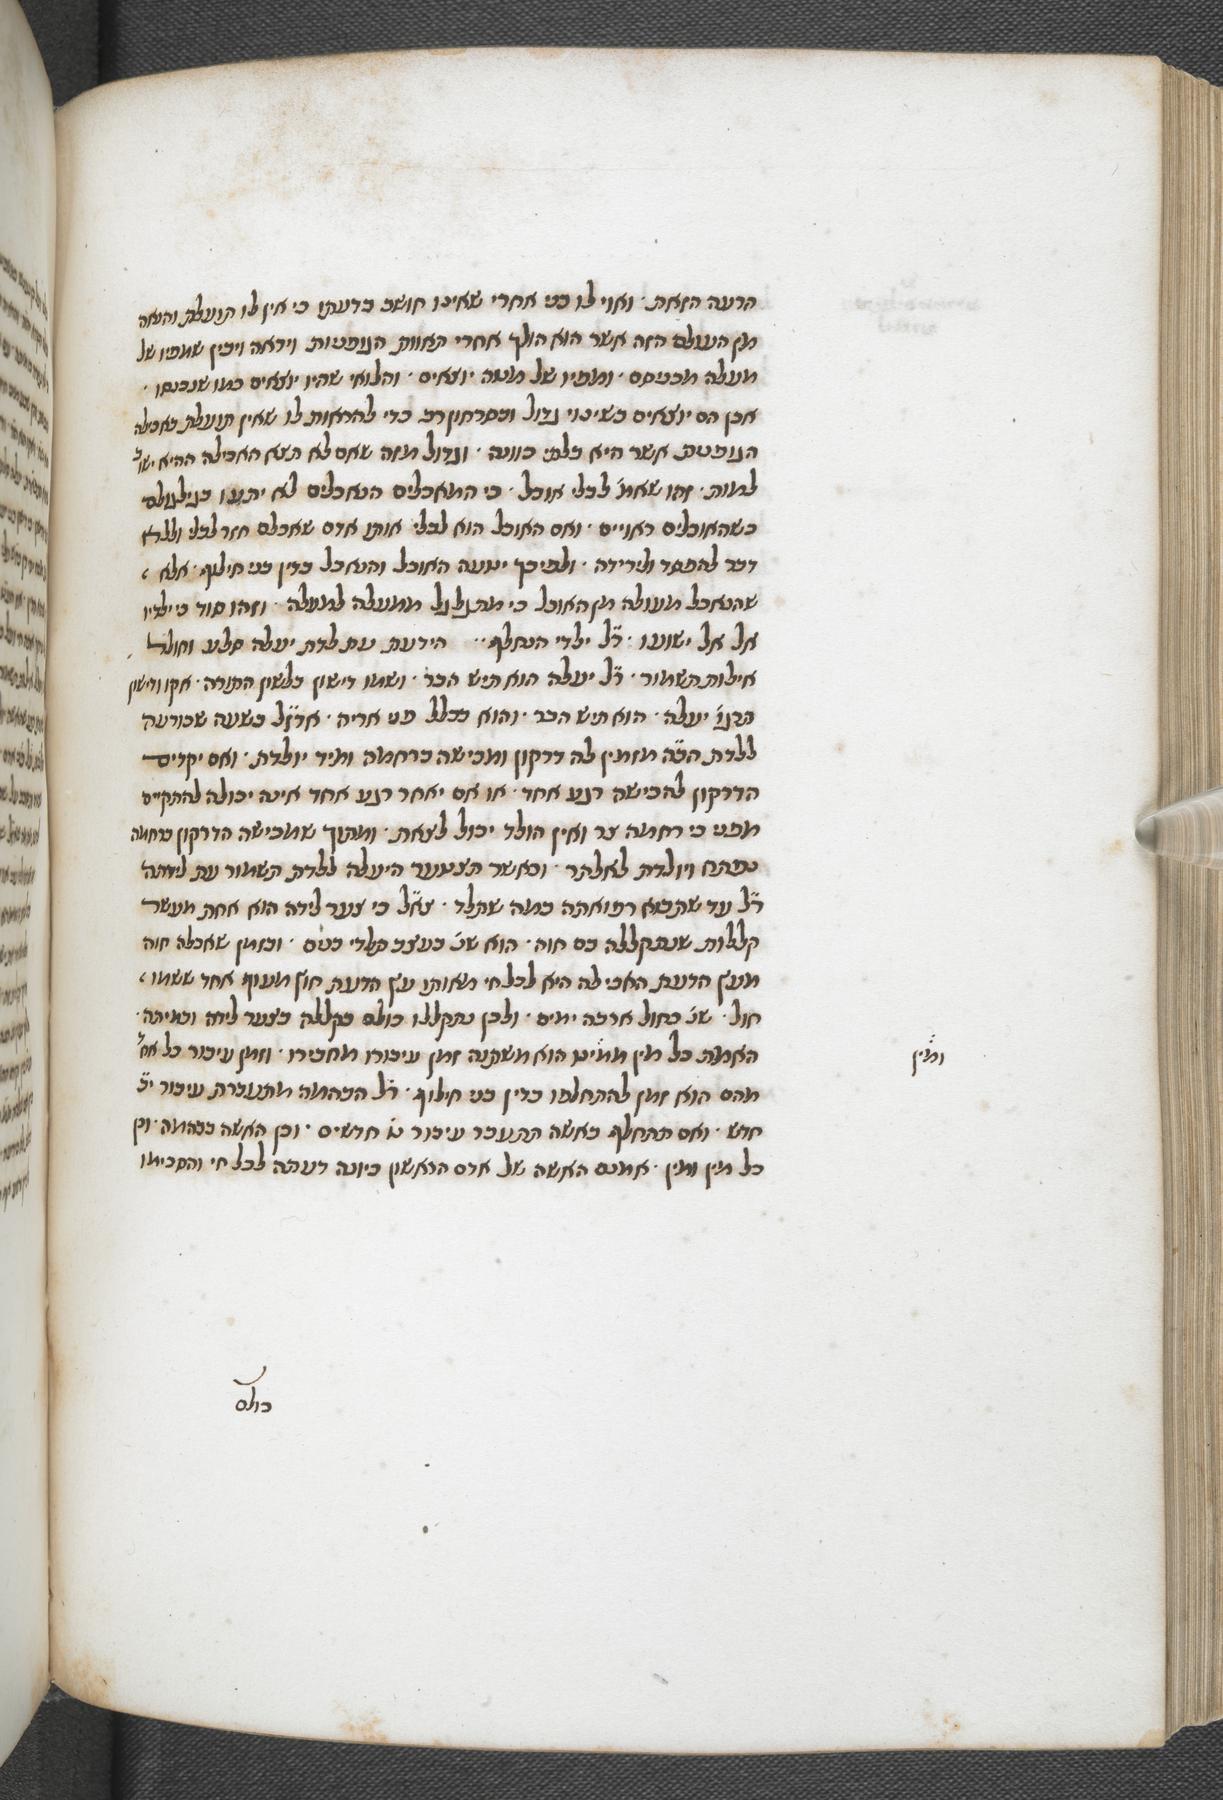 הרעה הזאת · ואוי לו כי אחרי שאינו חושב בדעתו כי אין לו תועלת והנאה
מן העולם הזה אשר הוא הולך אחרי תאוות הגופניות ויראה ויבין שמפיו של
מעלה מכניסם · ומפיו של מטה יוצאים · והלואי שהיו יוצאים כמו שנכנסו ·
אכן הם יוצאים בשינוי גדול ובסרחון רב כדי להראות לו שאין תועלת באכילה
הגופנית אשר היא בלתי כוונה · וגדול מזה שאם לא תצא האכילה ההיא
למות · זהו שאמ׳ לבלי אוכל · כי המאכלים הנאכלים לא יהנו בגילגולם
כשהאוכלים ראויים · ואם האוכל הוא לבלי אותו אדם שאכלם חזר לבלי וללא
דבר להפסד ולירידה · ולפיכך ישוה האוכל והנאכל בדין בני חילוף · אלא
שהנאכל מעולה מן האוכל כי מתגלגל ממעלה למעלה · וזהו סוד כי ילדיו
אל אל ישועו · ר״ל ילדי החלוף · הידעת עת לדת יעלי סלע וחולל
אילות תשמור · ר״ל יעלה הוא תיש הבר · ושמו דישון בלשון התורה · אקו ודישון
תרגו׳ יעלה · הוא תיש הבר · והוא בכלל פני אריה · ארז״ל בשעה שכורעה
ללדת הב״ה מזמין לה דרקון ומכישה ברחמה ומיד יולדת · ואם יקדים
הדרקון להכישה רגע אחד · או אם יאחר רגע אחד אינה יכולה להתקיים
מפני כי רחמה צר ואין הולד יכול לצאת · ומתוך שמכישה הדרקון ברחמה
נפתח ויולדת לאלתר · וכאשר תצטער היעלה ללדת תשמור עת לידתה
ר״ל עד שתבוא רפואתה כמה שתלד · צא״ל כי צער לידה הוא אחת מעשר
קללות שנתקללה בם חוה · הוא שנ׳ בעצב תלדי בנים · ובזמן שאכלה חוה
מעץ הדעת האכילה היא לכל חי מאותו עץ הדעת חוץ מעוף אחד ששמו
חול · שנ׳ כחול ארבה ימים · ולכן נתקללו כולם בקללה בצער לידה ובמיתה ·
האמת כל מין ממינם הוא משתנה זמן עיבורו מחבירו · וזמן עיבור כל אח׳
מהם הוא זמן להתחלפו בדין בני חילוף · ר״ל הבהמה מתעברת עיבור י״ב
חדש · ואם תתחלף באשה תתעבר עיבור ט׳ חדשים · וכן האשה בבהמה · וכן
כל מין ומין · אמנם האשה של אדם הראשון כיונה דעתה לכל חי והסכימו
ומין
כולם